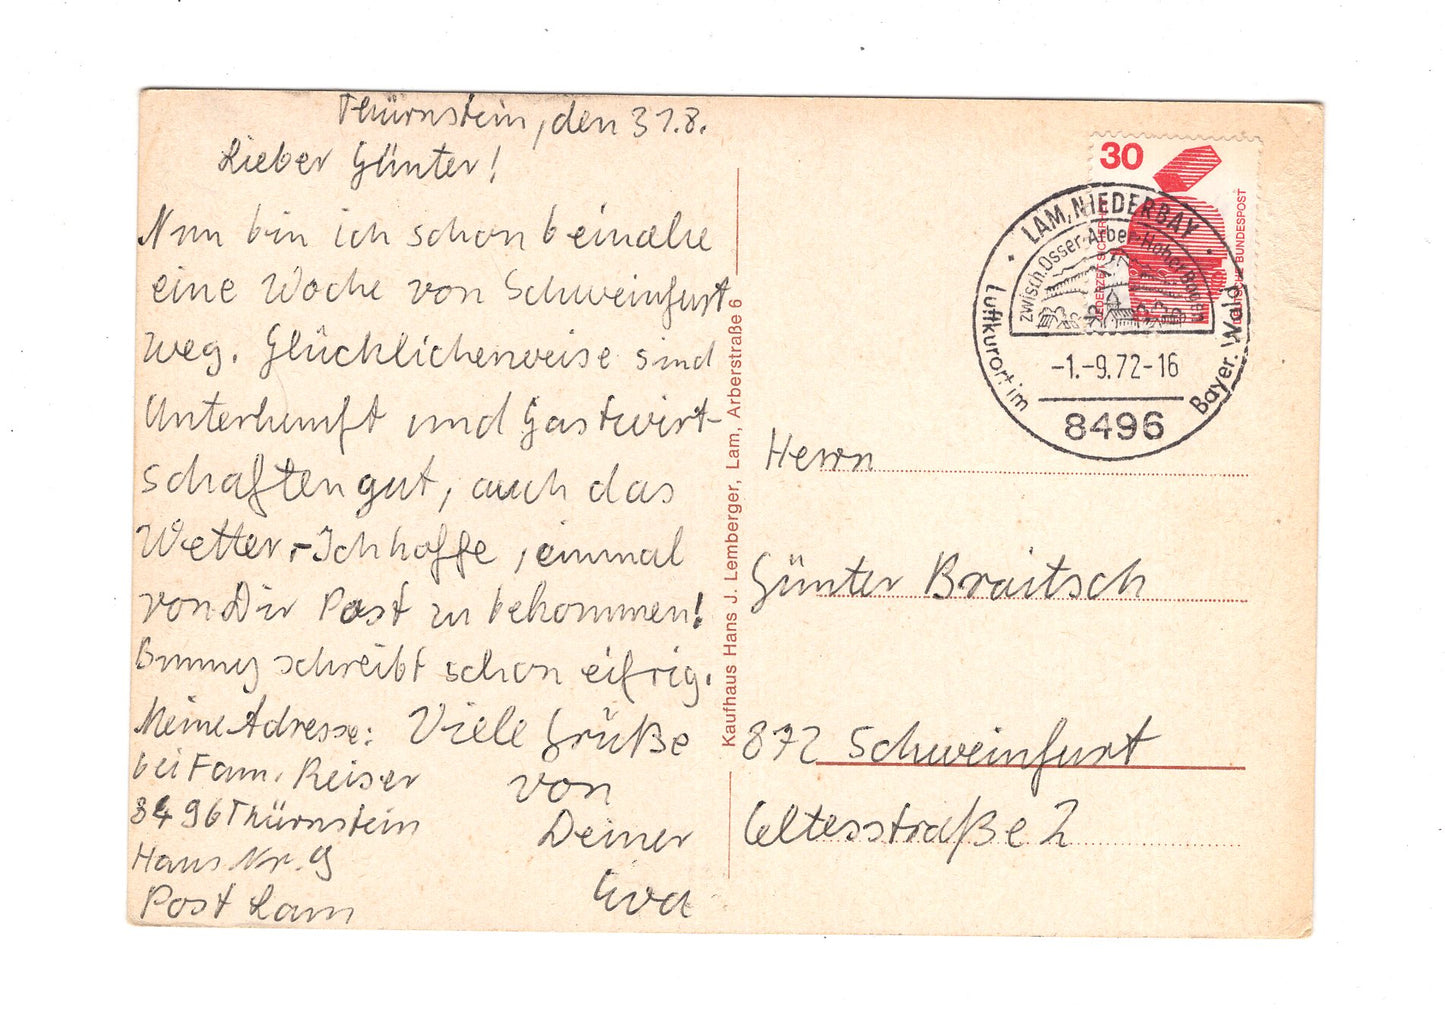 Thürnstein, den 31.8.
Lieber Günter!
Nun bin ich schon beinahe
eine Woche von Schweinfurt
weg. Glücklicherweise sind
Unterkunft und Gastwirt-
schaften gut, auch das
Wetter.-Ich hoffe, einmal
von Dir Post zu bekommen!
schreibt schon eifrig.
Meine Adresse:
bei Fam. Reiser
8496 Thürnstein
Haus Nr. 9
Post Lam
Viele Grüße
von
Deiner
Eva
Kaufhaus Hans J. Lemberger, Lam, Arberstraße 6
30
DEUTSCHE BUNDESPOST
JEDERZEIT SICHERHEIT
LAM, NIEDERBAY
zwisch. Osser-Arber-Hoher Bogen
Luftkurort im Bayer. Wald
-1.-9.72-16
8496
Herrn
Günter Braitsch
872 Schweinfurt
Celtesstraße 2